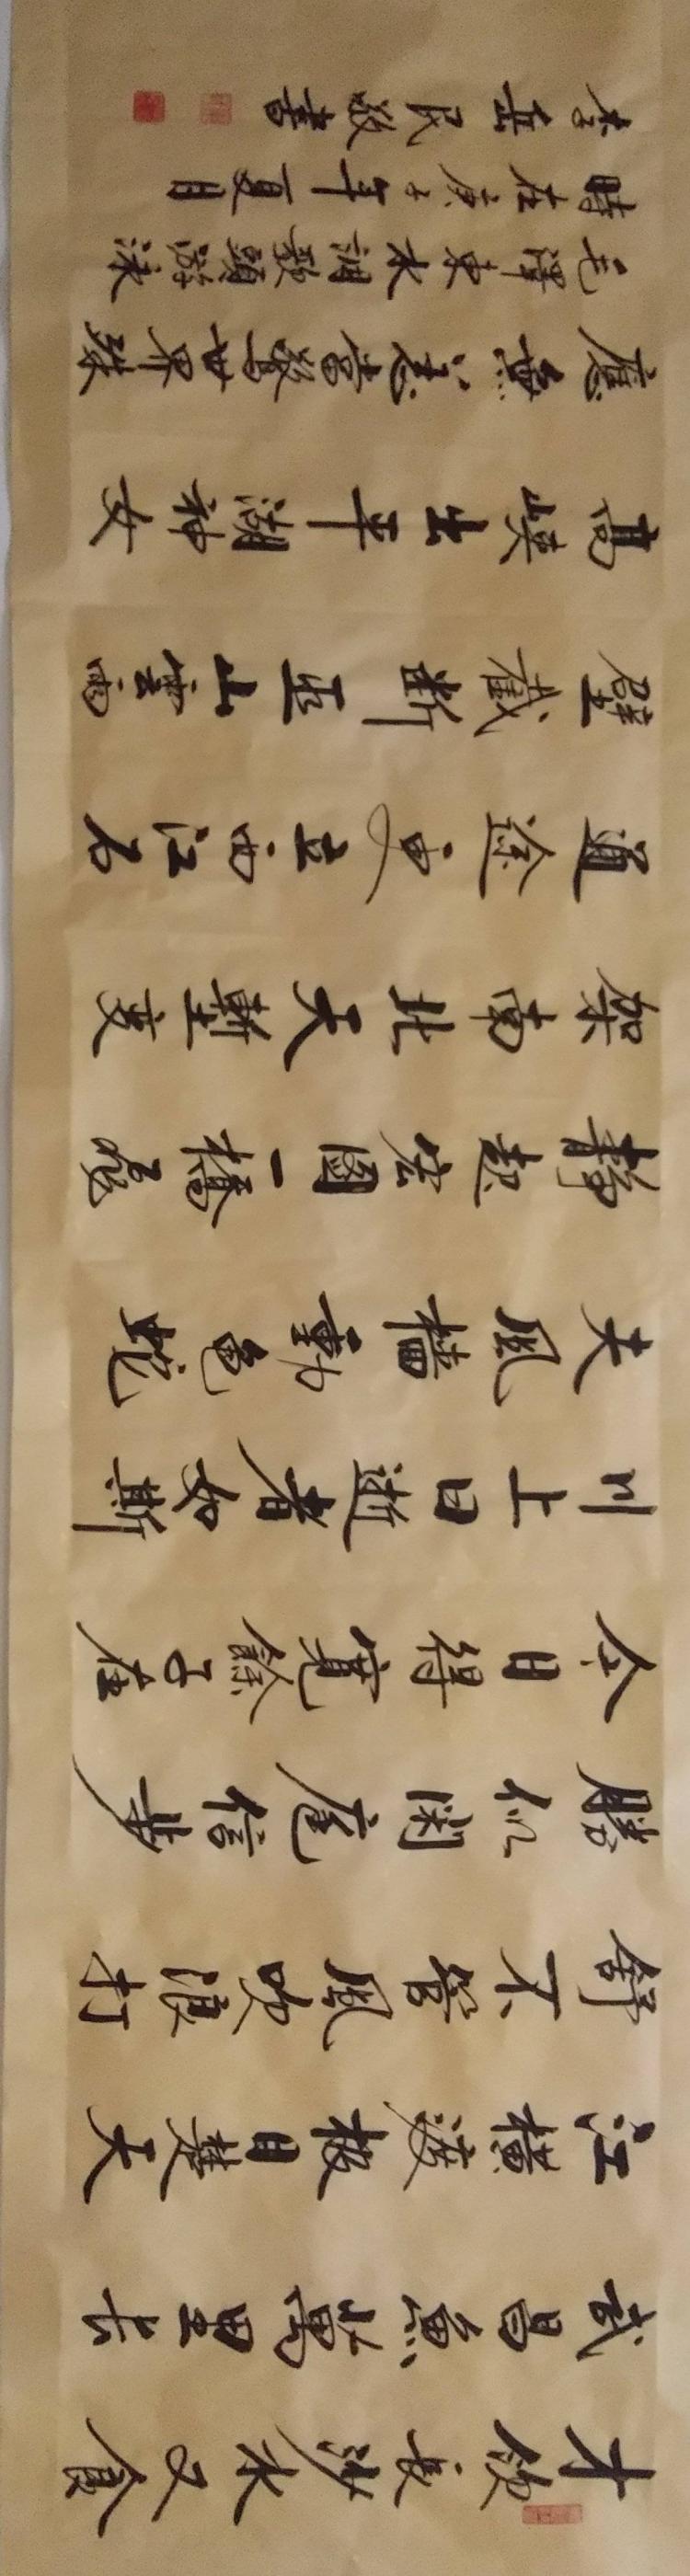 才飲長沙水又食
武昌魚萬里长
江橫渡极目楚天
舒不管風吹浪打
勝似闲庭信步
今日得寬餘子在
川上曰逝者如斯
夫風檣動龟蛇
静起宏圖一橋飛
架南北天塹变
通途更立西江石
壁截断巫山雲雨
高峽出平湖神女
應無恙當驚世界殊
毛澤東水調歌頭游泳
時在庚子年夏月
李岳民敬書